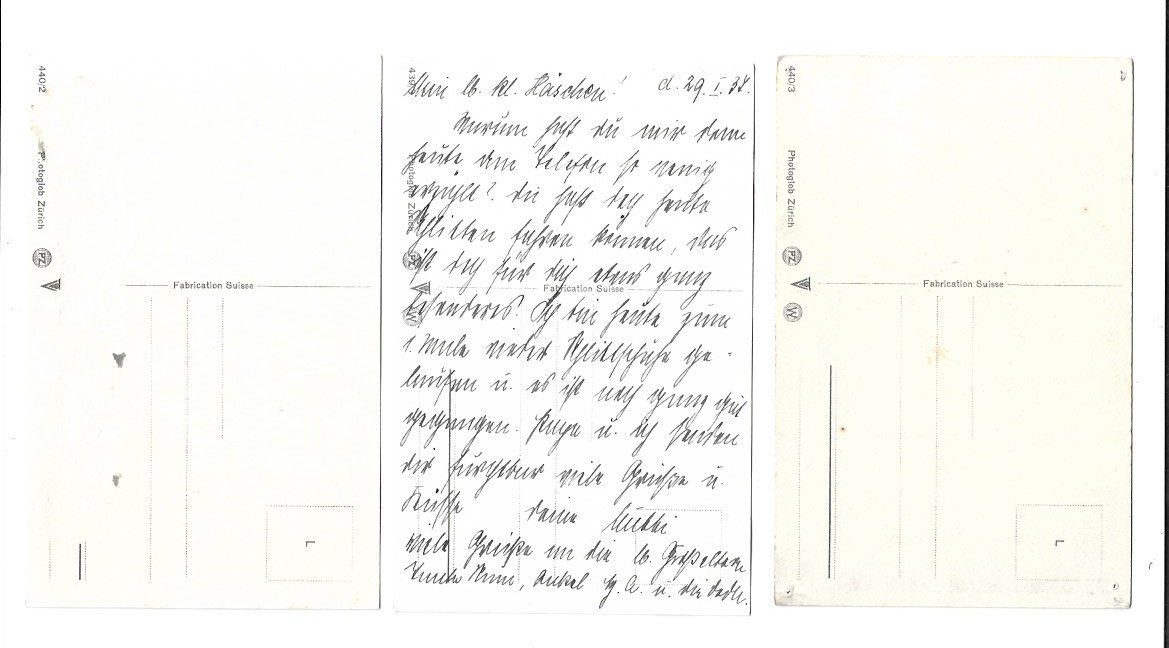 440/2
Photoglob Zürich
PZ
Fabrication Suisse
L
439
Mein lb. kl. Häschen! d. 29. I. 37.
Warum hast du mir denn
heute am Telefon so wenig
erzählt? Du hast doch heute
Schlitten fahren können, das
ist doch für dich etwas ganz
besonderes! Ich bin heute zum
1. Male wieder Schlittschuhe ge-
laufen u. es ist noch ganz gut
gegangen. Papa u. ich senden
dir furchtbar viele Grüsse u.
Küsse deine Mutti
Viele Grüße an die lb. Großeltern
Tante Onkel u. die
Photoglob Zürich
PZ
W
Fabrication Suisse
440/3
Photoglob Zürich
PZ
W
Fabrication Suisse
L